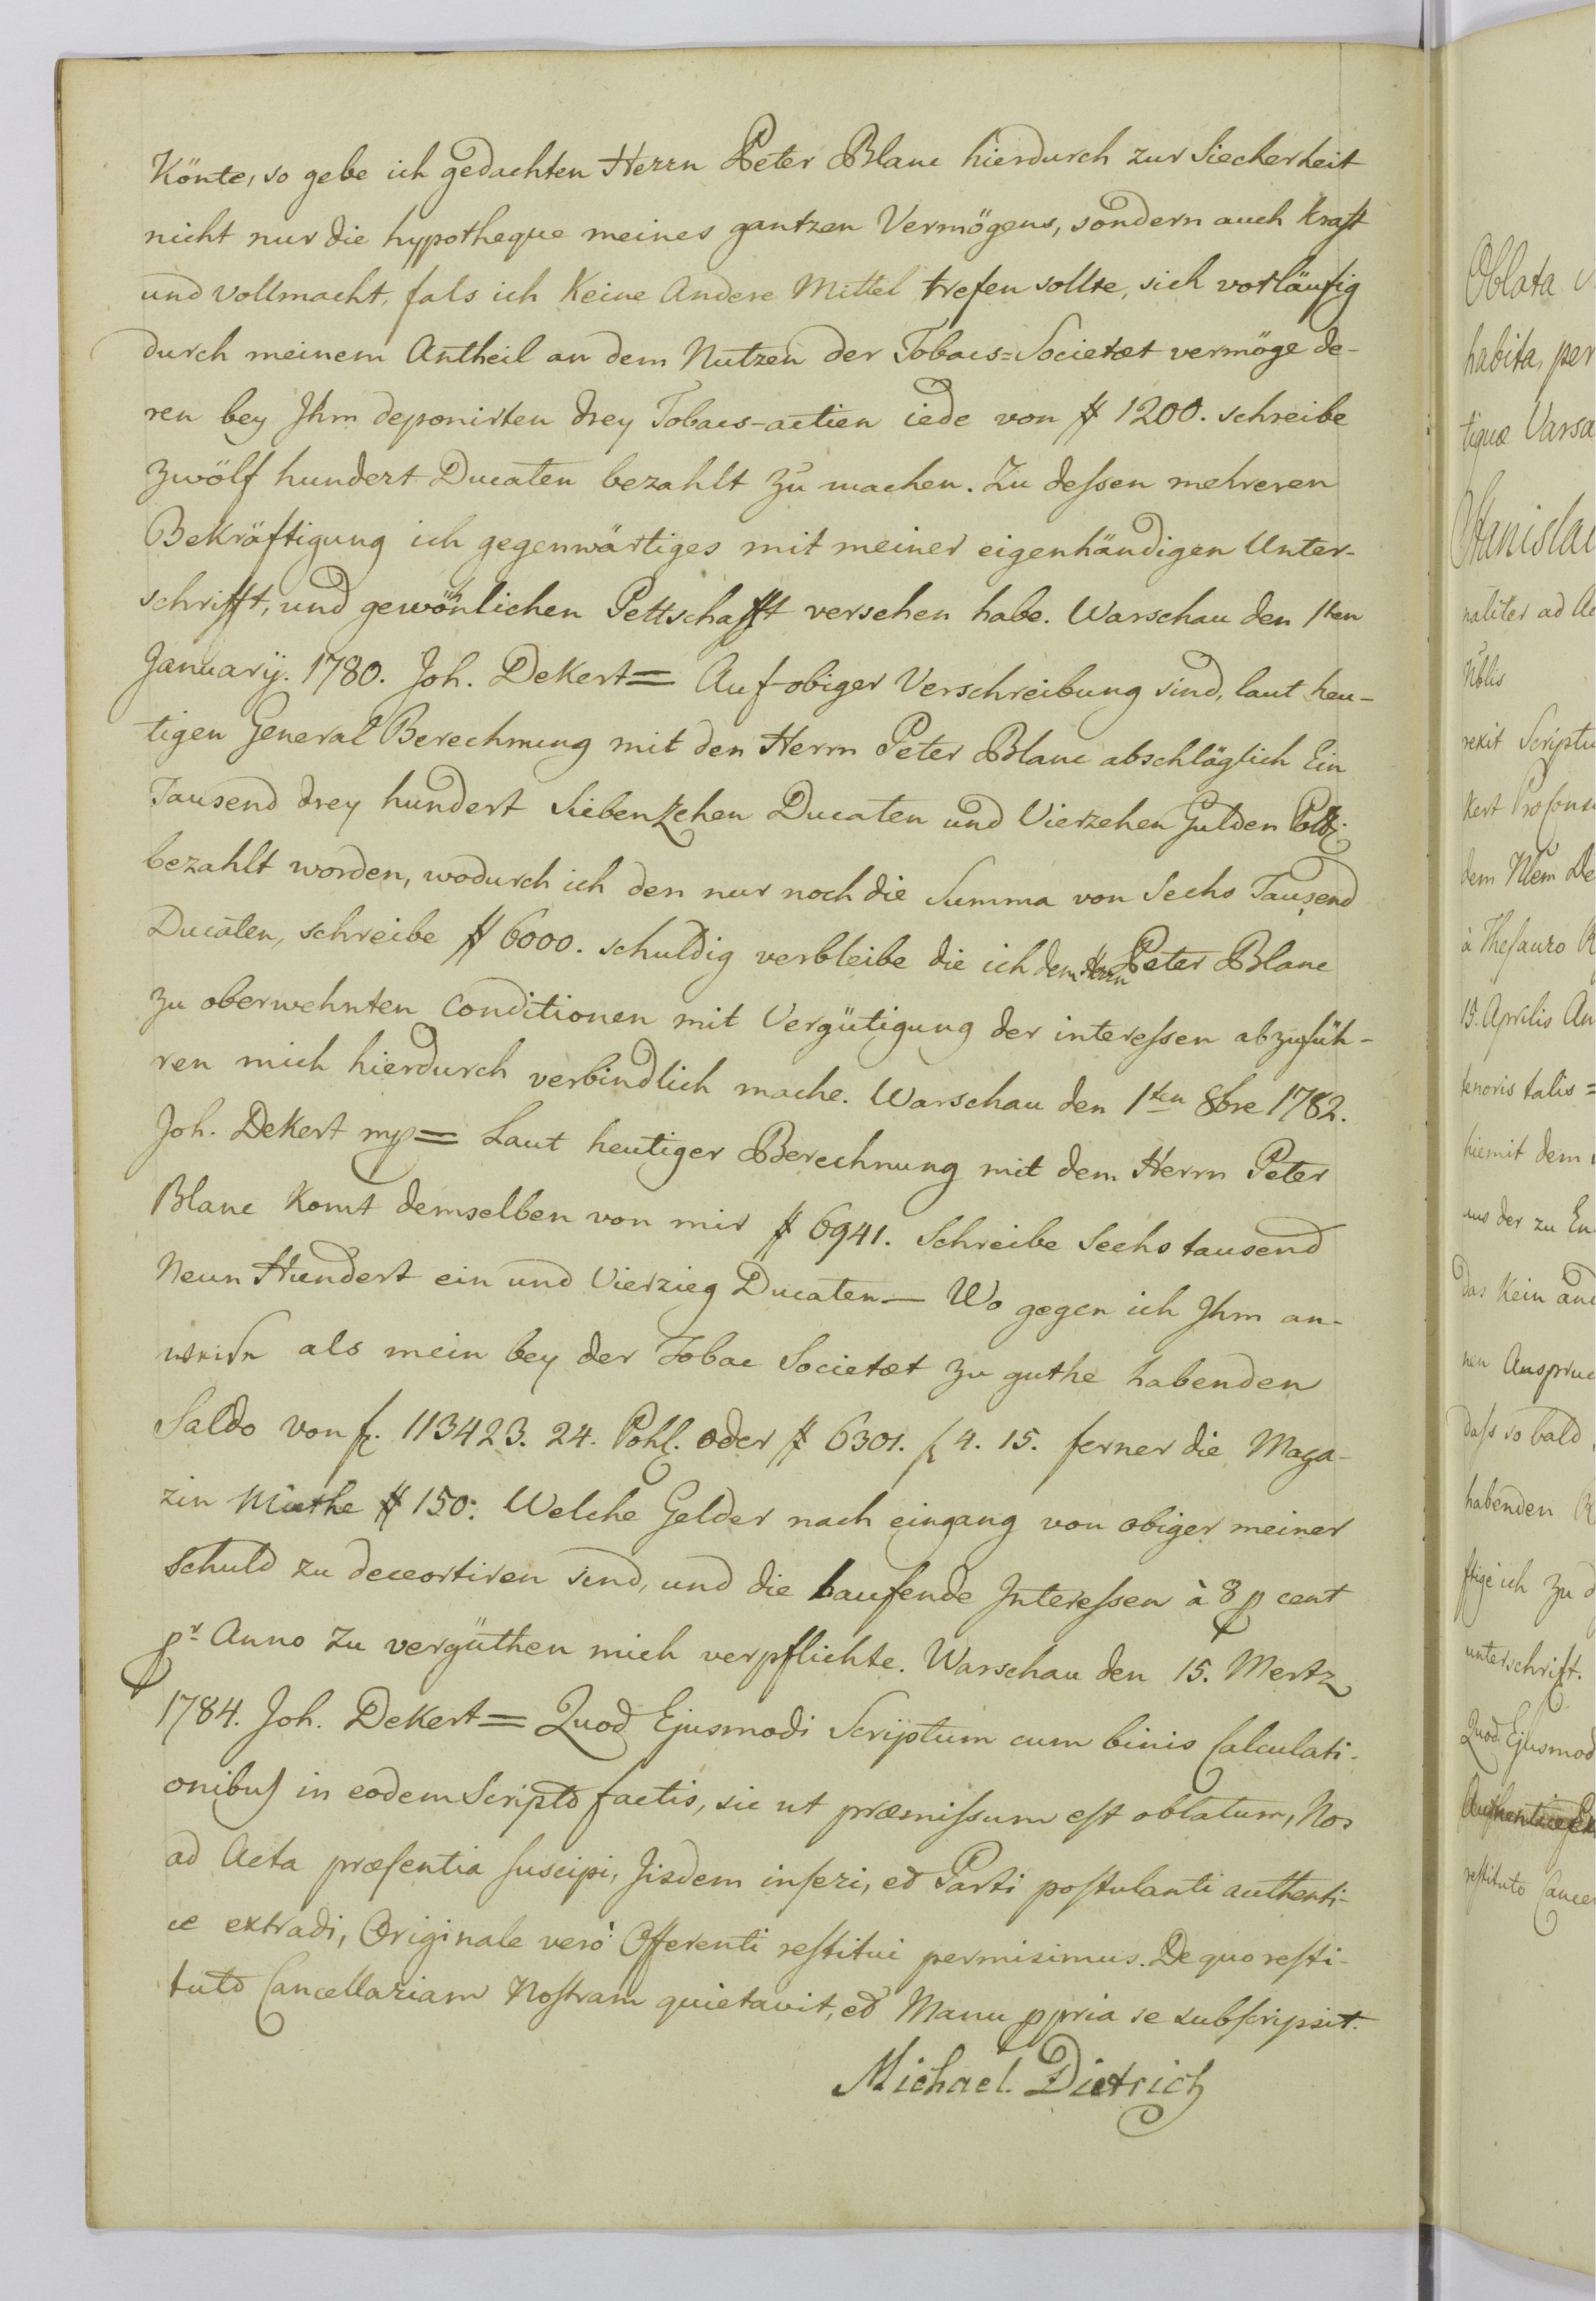 Könte, so gebe ich gedachten Herrn Peter Blanc hierdurch zur Siecherheit
nicht nur die hypotheque meines gantzen Vermögens, sondern auch Kraft
und vollmacht, fals ich Keine Andere Mittel trefen sollte, sich vorläufig
durch meinem Antheil an dem Nutzen der Tobacs=Societæt vermöge de-
ren bey Ihm deponirten drey Tobacs-actien iede von # 1200. schreibe
zwölf hundert Ducaten bezahlt zu machen. Zu dessen mehreren
Bekräftigung ich gegenwärtiges mit meiner eigenhändigen Unter-
schrifft, und gewöhnlichen Pettschafft versehen habe. Warschau den 1ten
Januarÿ. 1780. Joh. Dekert= Auf obiger Verschreibung sind, laut heu-
tigen General Berechnung mit den Herrn Peter Blanc abschläglich Ein
Tausend drey hundert Siebenzehen Ducaten und Vierzehen Gulden
bezahlt worden, wodurch ich den nur noch die Summa von Sechs Tausend
Ducaten, schreibe # 6000. schuldig verbleibe die ich dem Herrn Peter Blanc
zu oberwehnten Conditionen mit Vergütigung der interessen abzufüh-
ren mich hierdurch verbindlich mache. Warschau den 1ten 8bre 1782.
Joh. Dekert mp= Laut heutiger Berechnung mit dem Herrn Peter
Blanc Komt demselben von mir # 6941. Schreibe Sechs tausend
Neun Hundert ein und Vierzieg Ducaten— Wo gegen ich Ihm an-
weise als mein bey der Tobac Societæt zu guthe habenden
Saldo von f. 113423. 24. Pohl. oder # 6301. f 4. 15. ferner die Maga-
zin Miethe # 150. Welche Gelder nach eingang von obiger meiner
Schuld zu decortiren sind, und die laufende Interessen à 8 p cent
pr Anno zu vergüthen mich verpflichte. Warschau den 15. Mertz
1784. Joh. Dekert= Quod Ejusmodi Scriptum cum binis Calculati-
onibus in eodem Scripto factis, sic ut præmissum est oblatum, Nos
ad Acta præsentia suscipi, Iisdem inseri, et Parti postulanti authenti-
ce extradi, Originale verò Offerenti restitui permisimus. De quo resti-
tuto Cancellariam Nostram quietavit, et Manu ppria se subscripsit.
Michael Dietrich
Oblata
habita, per
tiquæ Varsa
Stanislai
naliter ad Ac
Nblis
rexit Scriptu
kert Proconsu
dem Nlem De
à Thesauro R
15. Aprilis An
tenoris talis=
hiemit dem
aus der zu En
das Kein and
nen Ansprue
dass so bald
habenden
ftige ich zu d
unterschrift.
Quod Ejusmod
restituto Cancel